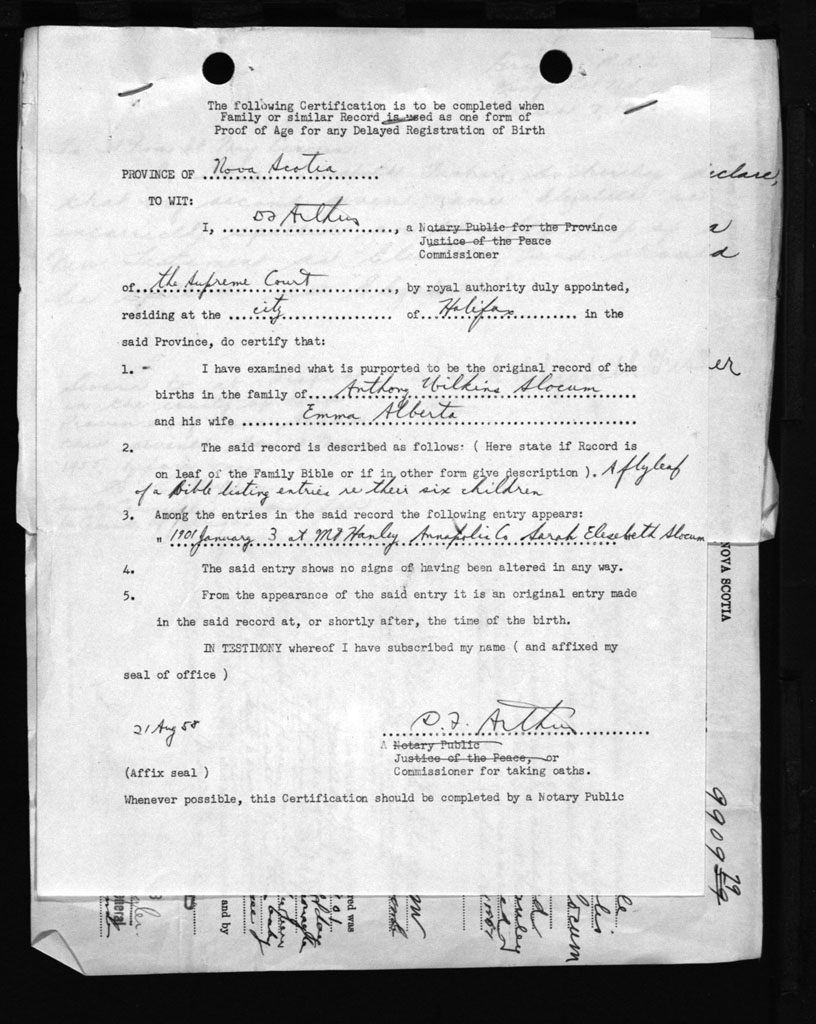 The following Certification is to be completed when
Family or similar Record is used as one form of
Proof of Age for any Delayed Registration of Birth
PROVINCE OF Nova Scotia
TO WIT:
I, D F Arthur, a Notary Public for the Province
Justice of the Peace
Commissioner
of the Supreme Court, by royal authority duly appointed,
residing at the city of Halifax in the
said Province, do certify that:
1. I have examined what is purported to be the original record of the
births in the family of Anthony Wilkins Slocum
and his wife Emma Alberta
2. The said record is described as follows: ( Here state if Record is
on leaf of the Family Bible or if in other form give description ). A flyleaf
of a Bible listing entries re their six children
3. Among the entries in the said record the following entry appears:
" 1901 January 3 at Mt Hanley Annapolis Co Sarah Elesebeth Slocum
4. The said entry shows no signs of having been altered in any way.
5. From the appearance of the said entry it is an original entry made
in the said record at, or shortly after, the time of the birth.
IN TESTIMONY whereof I have subscribed my name ( and affixed my
seal of office )
21 Aug 58
D. F. Arthur
A Notary Public
Justice of the Peace, or
(Affix seal ) Commissioner for taking oaths.
Whenever possible, this Certification should be completed by a Notary Public
eclare,
er
NOVA SCOTIA
9909
79
and by
red was